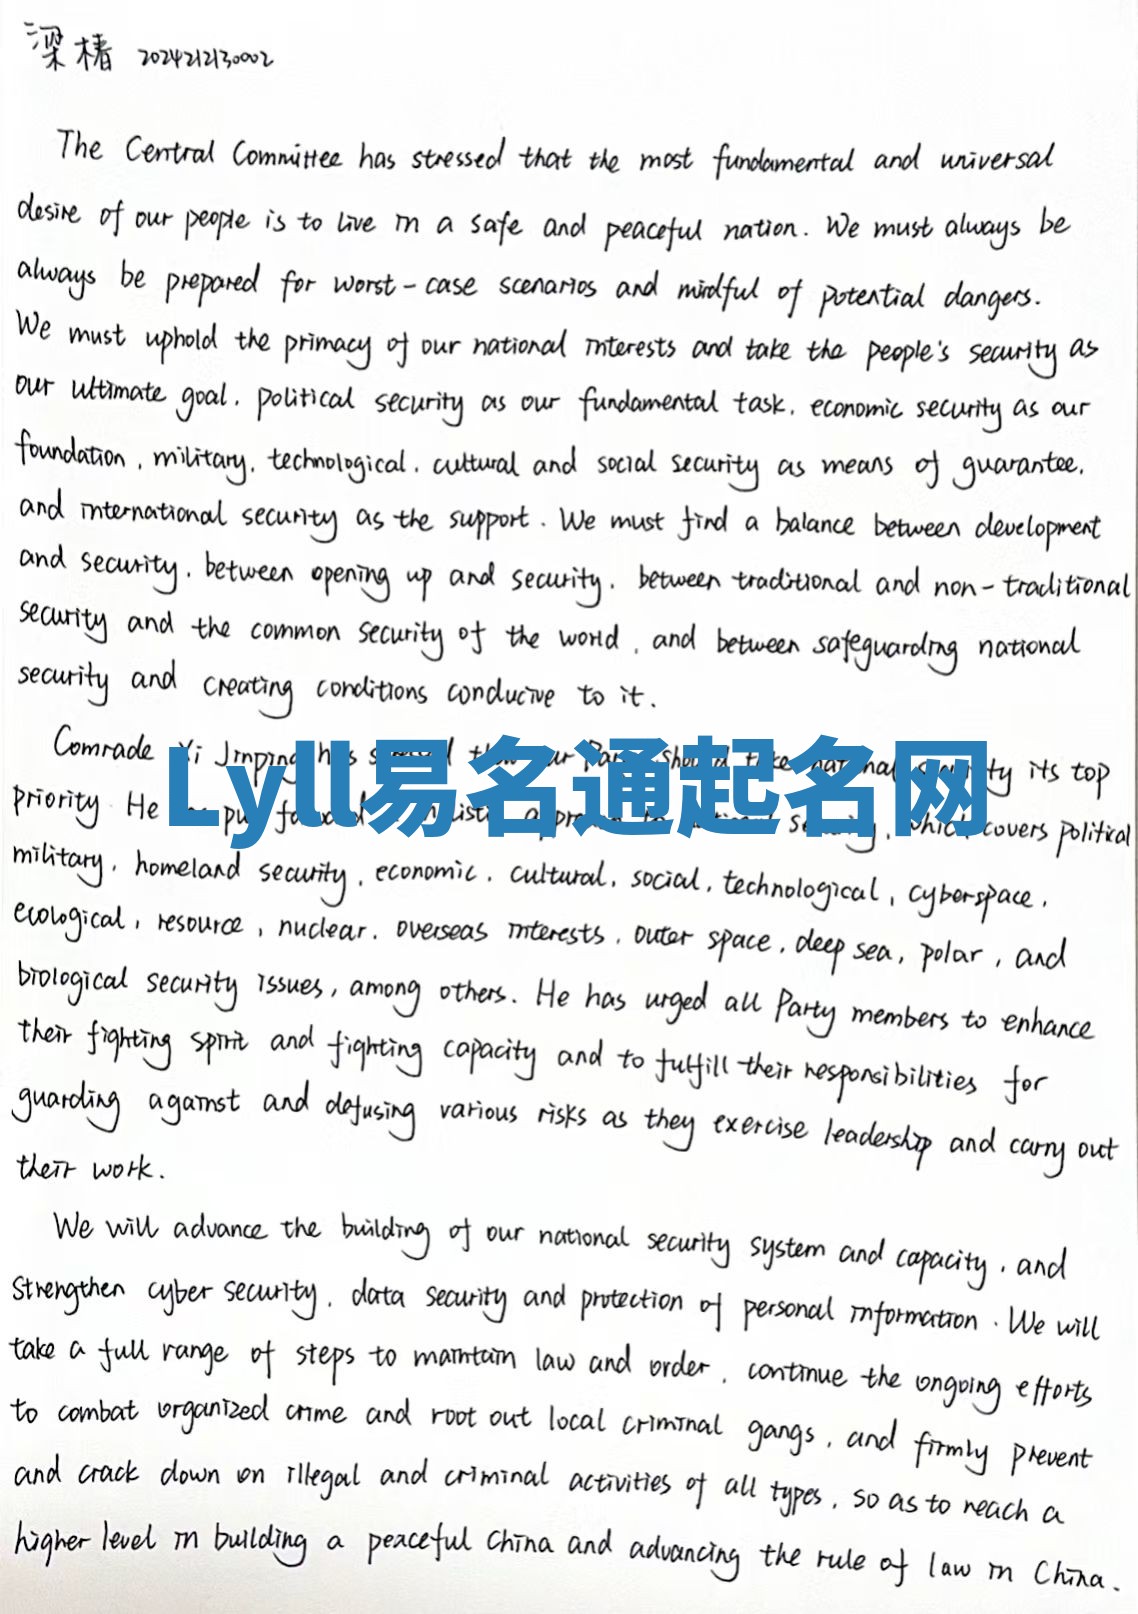 梁椿 2024212130002
The Central Committee has stressed that the most fundamental and universal
desire of our people is to live in a safe and peaceful nation. We must always be
always be prepared for worst-case scenarios and mindful of potential dangers.
We must uphold the primacy of our national interests and take the people's security as
our ultimate goal, political security as our fundamental task, economic security as our
foundation, military, technological, cultural and social security as means of guarantee,
and international security as the support. We must find a balance between development
and security, between opening up and security, between traditional and non-traditional
security and the common security of the world, and between safeguarding national
security and creating conditions conducive to it.
Comrade Xi Jinping has stressed that our Party should take national security its top
priority. He has put forward a holistic approach to national security, which covers political
military, homeland security, economic, cultural, social, technological, cyberspace,
ecological, resource, nuclear, overseas interests, outer space, deep sea, polar, and
biological security issues, among others. He has urged all Party members to enhance
their fighting spirit and fighting capacity and to fulfill their responsibilities for
guarding against and defusing various risks as they exercise leadership and carry out
their work.
We will advance the building of our national security system and capacity, and
strengthen cyber security, data security and protection of personal information. We will
take a full range of steps to maintain law and order, continue the ongoing efforts
to combat organized crime and root out local criminal gangs, and firmly prevent
and crack down on illegal and criminal activities of all types, so as to reach a
higher level in building a peaceful China and advancing the rule of law in China.
Lyll易名通起名网